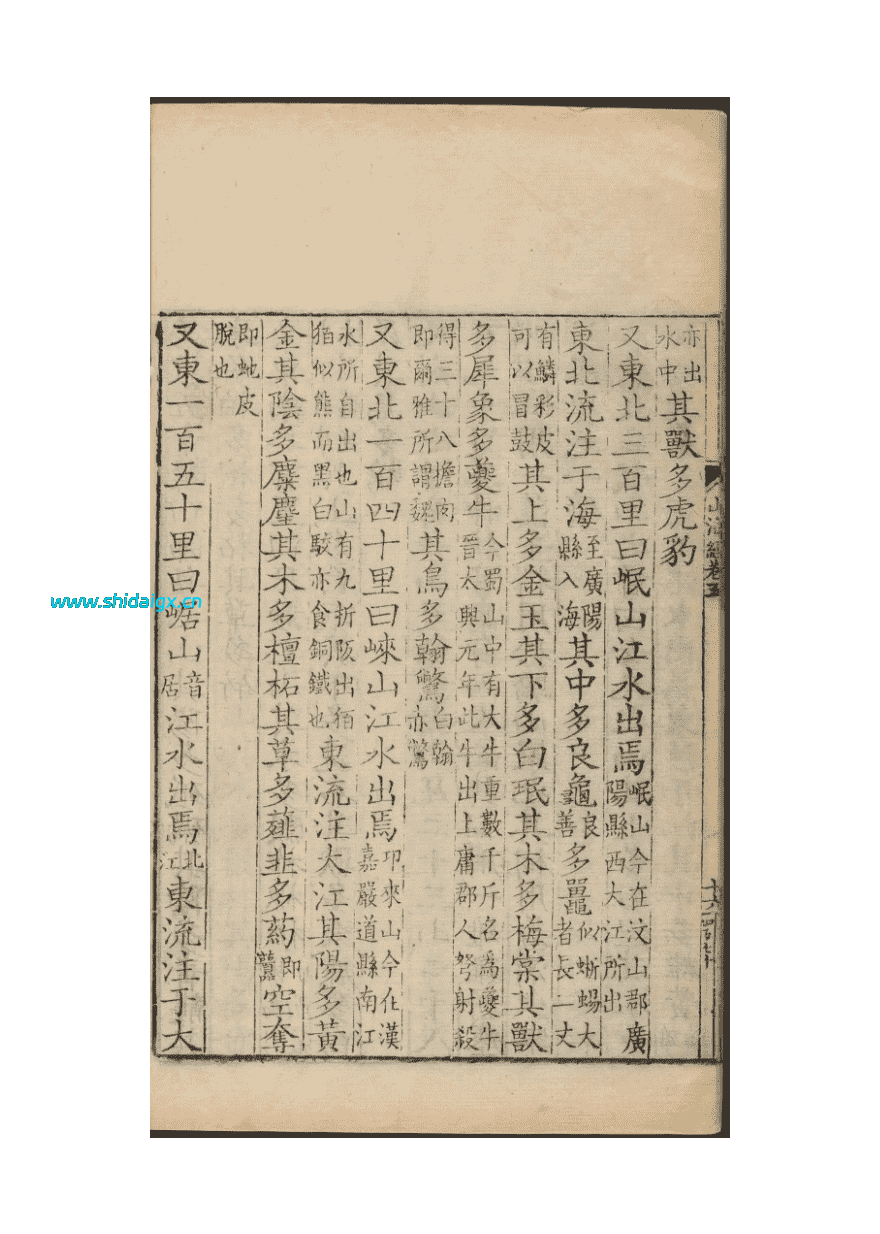 山海經卷五
十六
亦出水中其獸多虎豹
又東北三百里曰岷山江水出焉岷山今在汶山郡廣陽縣西大江所出
東北流注于海至廣陽縣入海其中多良龜良善多鼉似蜥蜴大者長二丈
有鱗彩皮可以冒鼓其上多金玉其下多白珉其木多梅棠其獸
多犀象多夔牛今蜀山中有大牛重數千斤名為夔牛晉太興元年此牛出上庸郡人弩射殺
得三十八擔肉即爾雅所謂魏其鳥多翰鷩白翰赤鷩
又東北一百四十里曰崍山江水出焉卭來山今在漢嘉嚴道縣南江
水所自出也山有九折阪出狛狛似熊而黑白駮亦食銅鐵也東流注大江其陽多黃
金其陰多麋麈其木多檀柘其草多薤韭多葯即虈空奪
即虵皮脫也
又東一百五十里曰崌山音居江水出焉北江東流注于大
www.shidaigx.cn